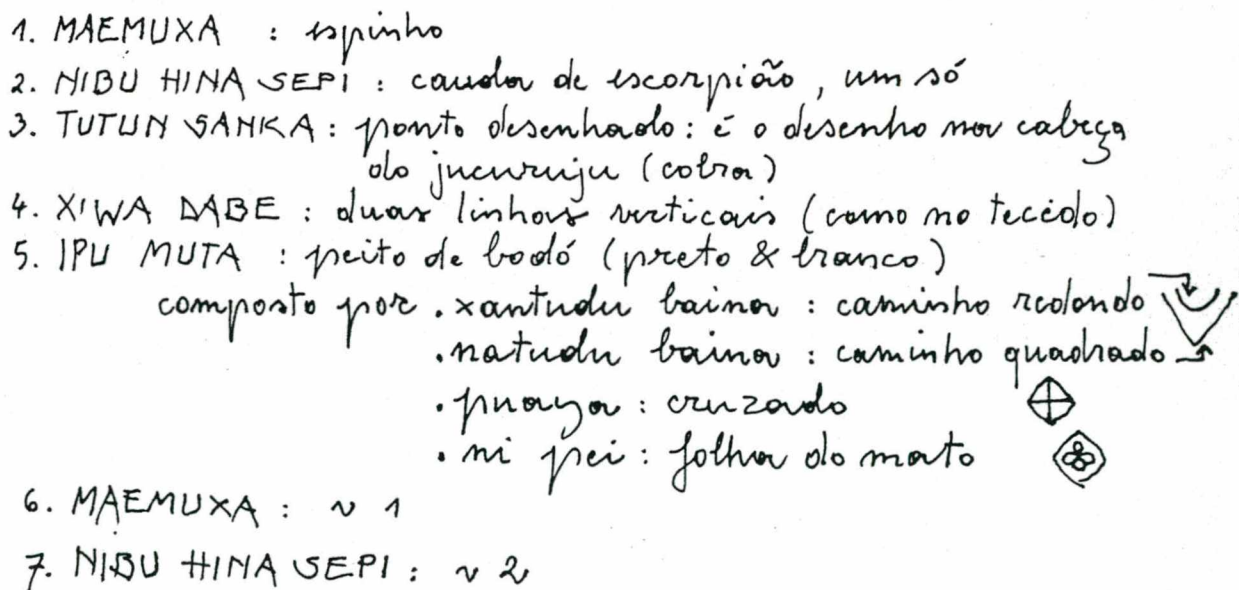 1. MAEMUXA : espinho
2. NIBU HINA SEPI : cauda de escorpião, um só
3. TUTUN SANKA : ponto desenhado : é o desenho na cabeça
do jucuruju (cobra)
4. XIWA DABE : duas linhas verticais (como no tecido)
5. IPU MUTA : peito de bodó (preto & branco)
composto por . xantudu baina : caminho redondo
. natudu baina : caminho quadrado
. puaya : cruzado
. ni pei : folha do mato
6. MAEMUXA : ~ 1
7. NIBU HINA SEPI : ~ 2